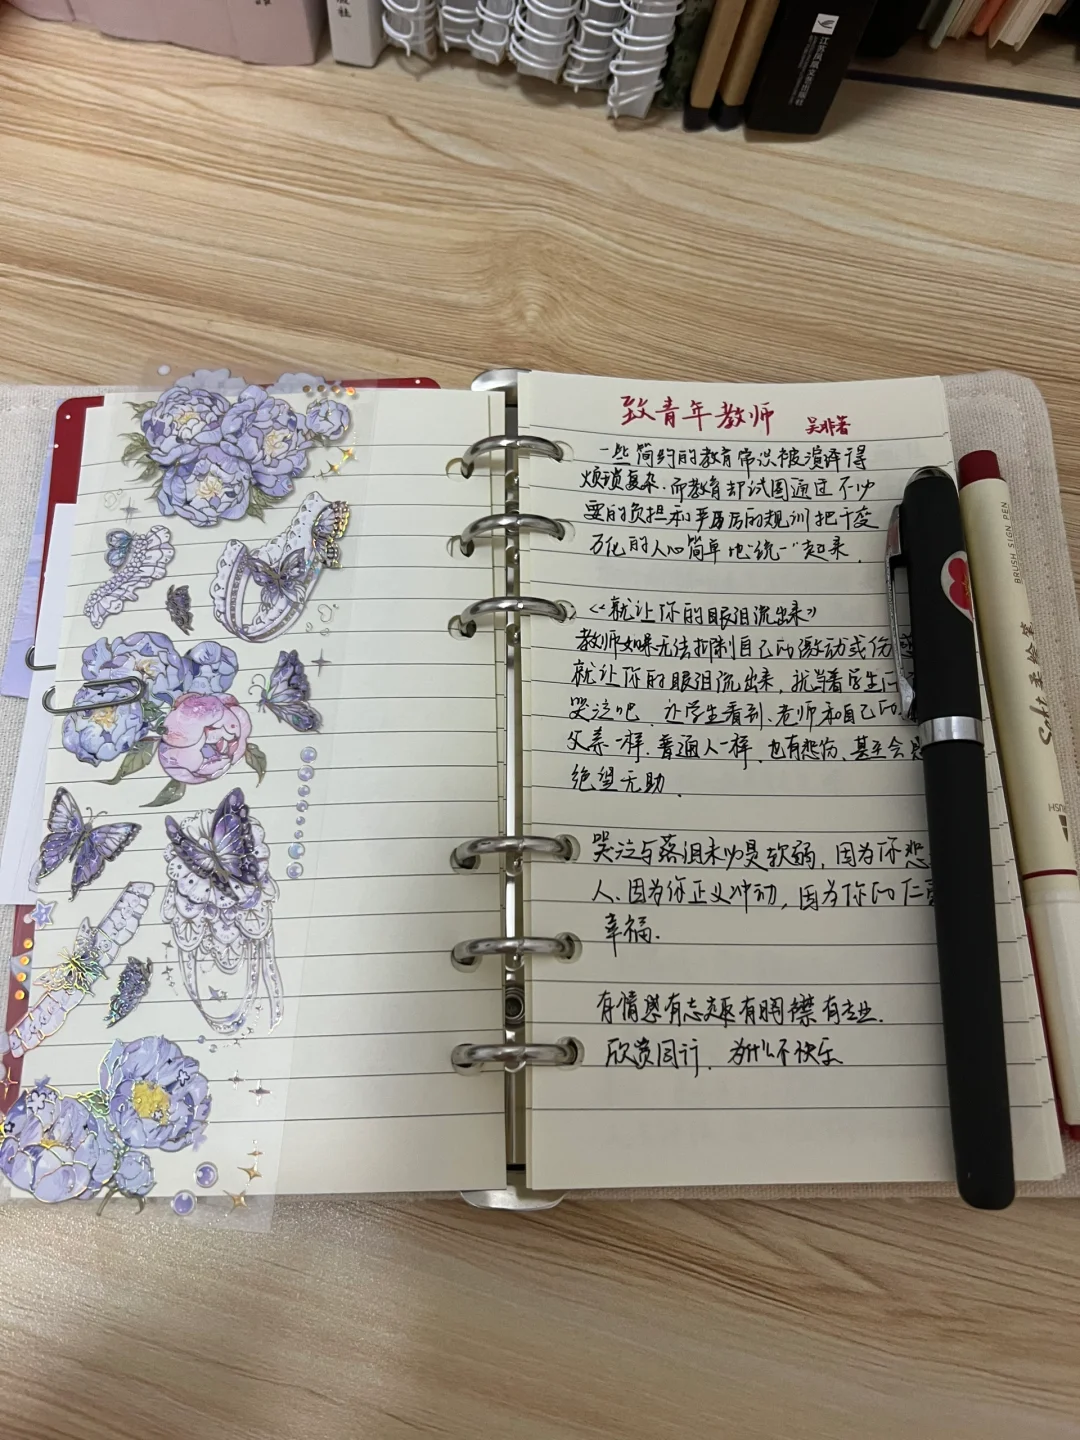 江苏凤凰文艺出版社
致青年教师 吴非著
一些简约的教育常识被演绎得
烦琐复杂.而教育却试图通过不必
要的负担和严厉的规训把千变
万化的人心简单地“统一”起来.
《就让你的眼泪流出来》
教师如果无法抑制自己的激动或伤
就让你的眼泪流出来,就当着学生
哭泣吧.让学生看到、老师和自己的
父亲一样.普通人一样,也有悲伤,甚至会
绝望无助.
哭泣与落泪未必是软弱,因为你悲
人、因为你正义冲动,因为你的仁
幸福.
有情感有志趣有胸襟有专业.
欣赏同行.为什么不快乐
BRUSH SIGN PEN
Soft 柔绘笔